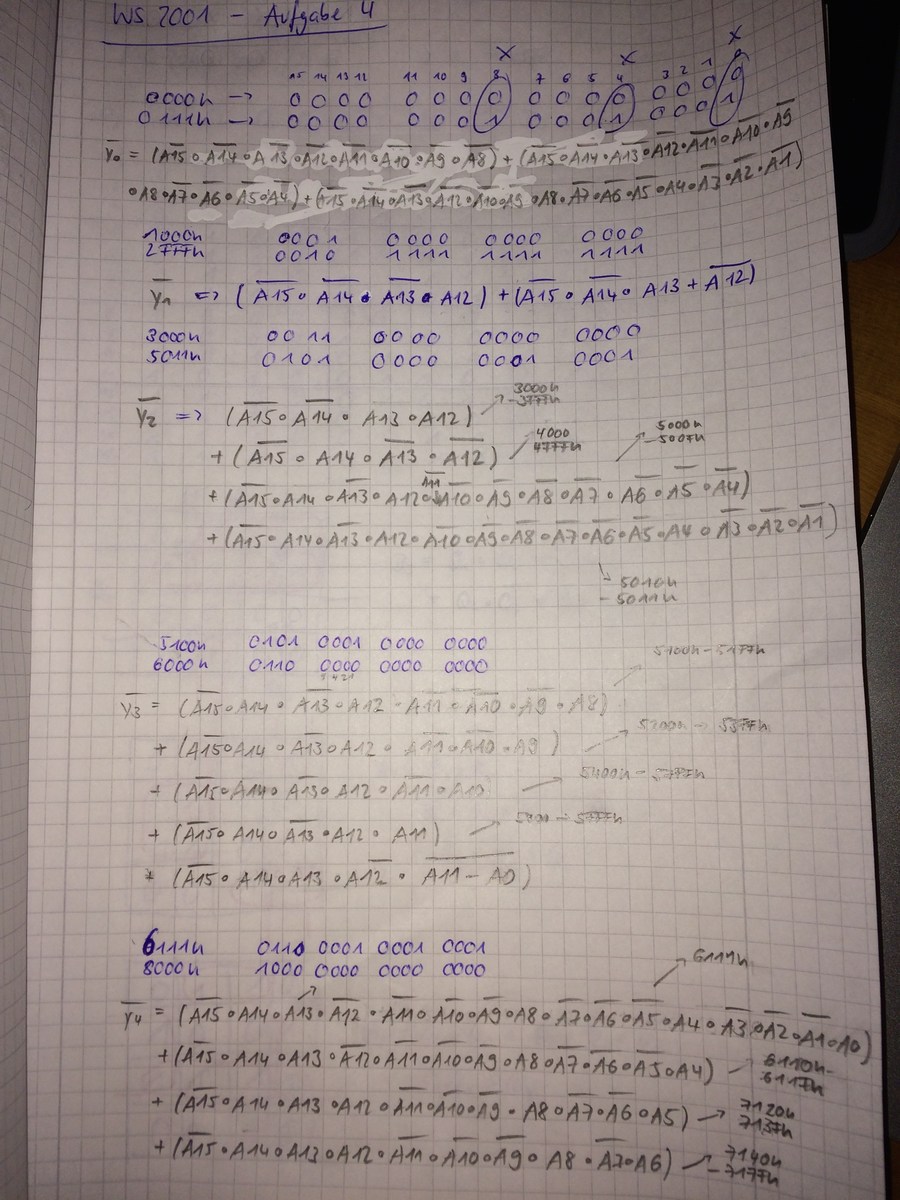 WS 2001 - Aufgabe 4
X X X
15 14 13 12 11 10 9 8 7 6 5 4 3 2 1 0
0000h -> 0000 0000 0000 0000
0111h -> 0000 0001 0001 0001
Y̅0̅ = (A̅1̅5̅ ∘ A̅1̅4̅ ∘ A̅1̅3̅ ∘ A̅1̅2̅ ∘ A̅1̅1̅ ∘ A̅1̅0̅ ∘ A̅9̅ ∘ A̅8̅) + (A̅1̅5̅ ∘ A̅1̅4̅ ∘ A̅1̅3̅ ∘ A̅1̅2̅ ∘ A̅1̅1̅ ∘ A̅1̅0̅ ∘ A̅9̅
∘ A8 ∘ A̅7̅ ∘ A̅6̅ ∘ A̅5̅ ∘ A̅4̅) + (A̅1̅5̅ ∘ A̅1̅4̅ ∘ A̅1̅3̅ ∘ A̅1̅2̅ ∘ A̅1̅0̅ ∘ A̅9̅ ∘ A8 ∘ A̅7̅ ∘ A̅6̅ ∘ A̅5̅ ∘ A4 ∘ A̅3̅ ∘ A̅2̅ ∘ A̅1̅)
1000h 0001 0000 0000 0000
2777h 0010 1111 1111 1111
Y̅1̅ => (A̅1̅5̅ ∘ A̅1̅4̅ ∘ A̅1̅3̅ ∘ A12) + (A̅1̅5̅ ∘ A̅1̅4̅ ∘ A13 + A̅1̅2̅)
3000h 0011 0000 0000 0000
5011h 0101 0000 0001 0001
Y̅2̅ => (A̅1̅5̅ ∘ A̅1̅4̅ ∘ A13 ∘ A12) 3000h - 3777h
+ (A̅1̅5̅ ∘ A14 ∘ A̅1̅3̅ ∘ A̅1̅2̅) 4000 4777h 5000h - 5007h
+ (A̅1̅5̅ ∘ A14 ∘ A̅1̅3̅ ∘ A12 ∘ A̅1̅1̅ ∘ A̅1̅0̅ ∘ A̅9̅ ∘ A̅8̅ ∘ A̅7̅ ∘ A̅6̅ ∘ A̅5̅ ∘ A̅4̅)
+ (A̅1̅5̅ ∘ A14 ∘ A̅1̅3̅ ∘ A12 ∘ A̅1̅0̅ ∘ A̅9̅ ∘ A̅8̅ ∘ A̅7̅ ∘ A̅6̅ ∘ A̅5̅ ∘ A4 ∘ A̅3̅ ∘ A̅2̅ ∘ A̅1̅)
5010h
- 5011h
5100h 0101 0001 0000 0000
6000h 0110 0000 0000 0000
5100h - 5177h
Y̅3̅ = (A̅1̅5̅ ∘ A14 ∘ A̅1̅3̅ ∘ A12 ∘ A̅1̅1̅ ∘ A̅1̅0̅ ∘ A̅9̅ ∘ A8)
+ (A̅1̅5̅ ∘ A14 ∘ A̅1̅3̅ ∘ A12 ∘ A̅1̅1̅ ∘ A̅1̅0̅ ∘ A9) 5200h - 5377h
+ (A̅1̅5̅ ∘ A14 ∘ A̅1̅3̅ ∘ A12 ∘ A̅1̅1̅ ∘ A10 5400h - 5777h
+ (A̅1̅5̅ ∘ A14 ∘ A̅1̅3̅ ∘ A12 ∘ A11)
+ (A̅1̅5̅ ∘ A14 ∘ A13 ∘ A̅1̅2̅ ∘ A̅1̅1̅ ̅-̅ ̅A̅0̅)
6111h 0110 0001 0001 0001
8000h 1000 0000 0000 0000
6111h
Y̅4̅ = (A̅1̅5̅ ∘ A14 ∘ A13 ∘ A̅1̅2̅ ∘ A̅1̅1̅ ∘ A̅1̅0̅ ∘ A̅9̅ ∘ A8 ∘ A̅7̅ ∘ A̅6̅ ∘ A̅5̅ ∘ A4 ∘ A̅3̅ ∘ A̅2̅ ∘ A̅1̅ ∘ A0)
+ (A̅1̅5̅ ∘ A14 ∘ A13 ∘ A̅1̅2̅ ∘ A̅1̅1̅ ∘ A̅1̅0̅ ∘ A̅9̅ ∘ A8 ∘ A̅7̅ ∘ A̅6̅ ∘ A̅5̅ ∘ A4) - 6110h - 6117h
+ (A̅1̅5̅ ∘ A14 ∘ A13 ∘ A12 ∘ A̅1̅1̅ ∘ A̅1̅0̅ ∘ A̅9̅ ∘ A8 ∘ A̅7̅ ∘ A̅6̅ ∘ A5) 7120h 7137h
+ (A̅1̅5̅ ∘ A14 ∘ A13 ∘ A12 ∘ A̅1̅1̅ ∘ A̅1̅0̅ ∘ A̅9̅ ∘ A8 ∘ A̅7̅ ∘ A6) 7140h - 7177h